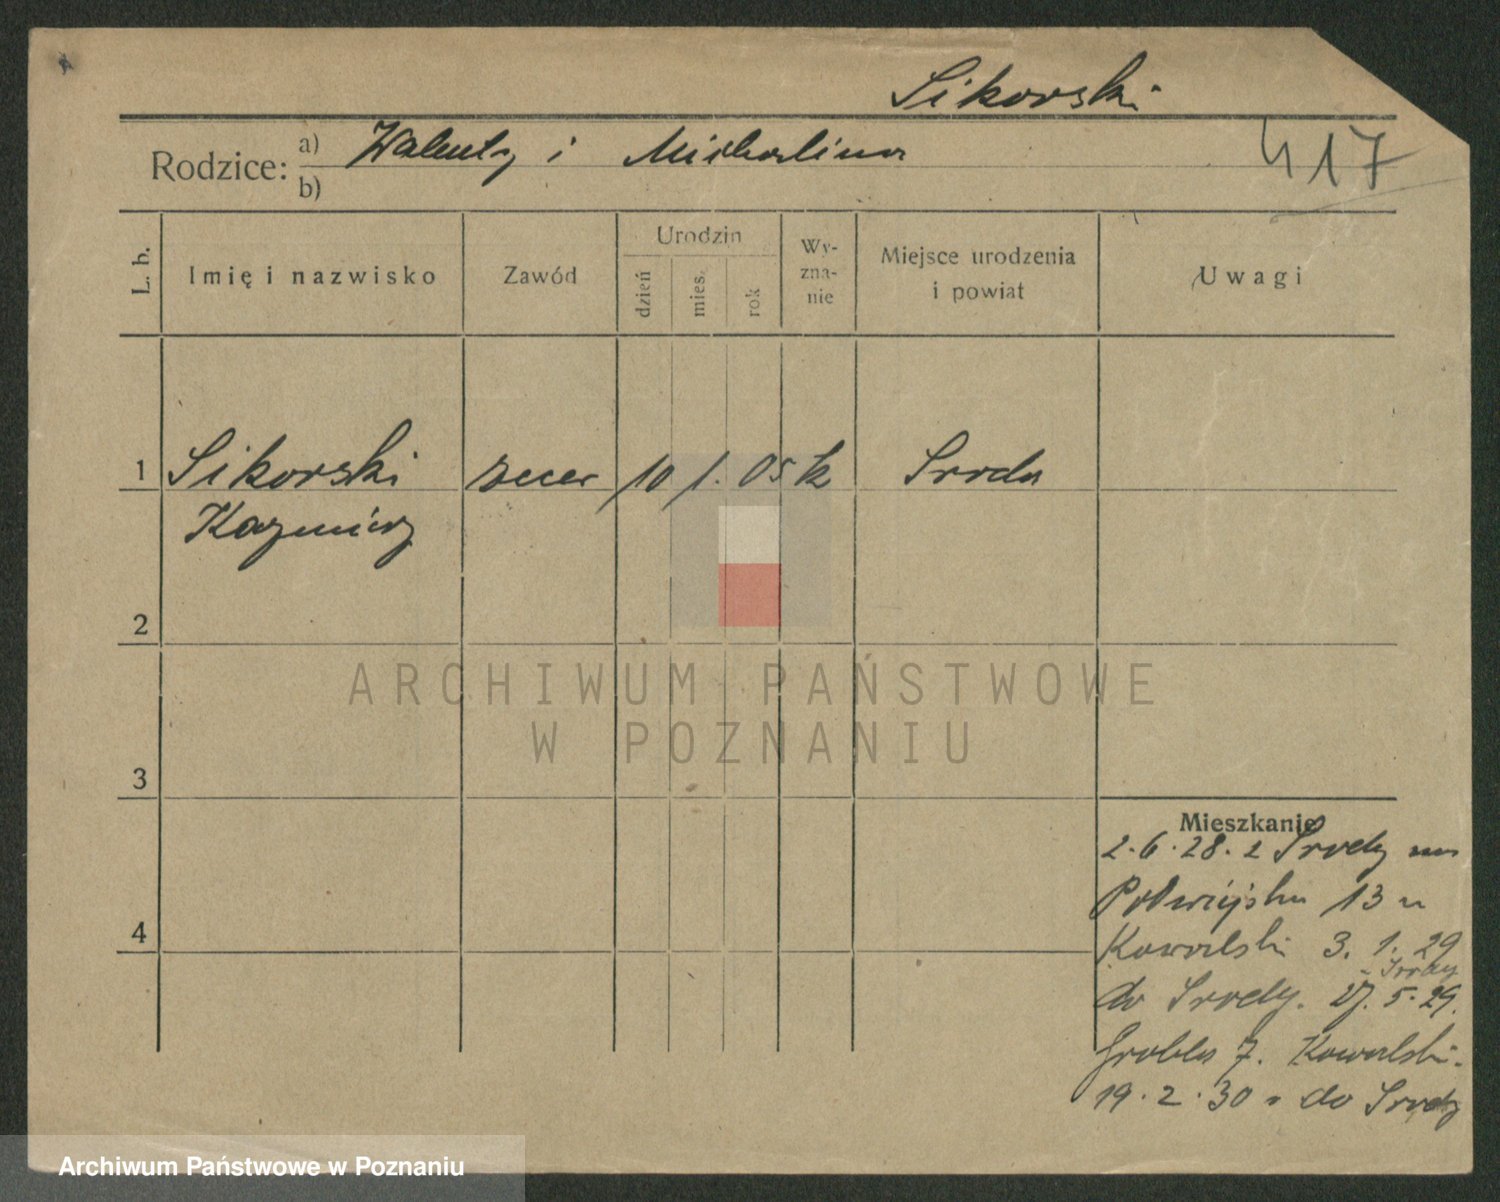 Sikorski
Rodzice: a) Walenty i Michalina
b)
417
L. b.
Imię i nazwisko
Zawód
Urodzin
dzień
mies.
rok
Wy-
zna-
nie
Miejsce urodzenia
i powiat
Uwagi
1 Sikorski zecer 10 1. 05 k Sroda
Kazmierz
2
3
4
Mieszkanie
2.6.28. z Srody na
13 u
Kowalski 3. 1. 29
z Srody
do Srody. 17. 5. 29.
Grobla 7. Kowalski.
19.2.30 do Srody
ARCHIWUM PAŃSTWOWE
W POZNANIU
Archiwum Państwowe w Poznaniu